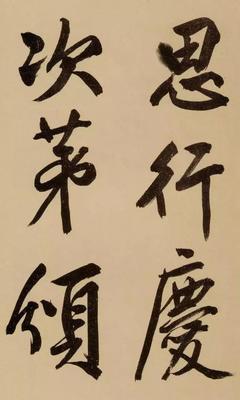 思行慶
次第頒